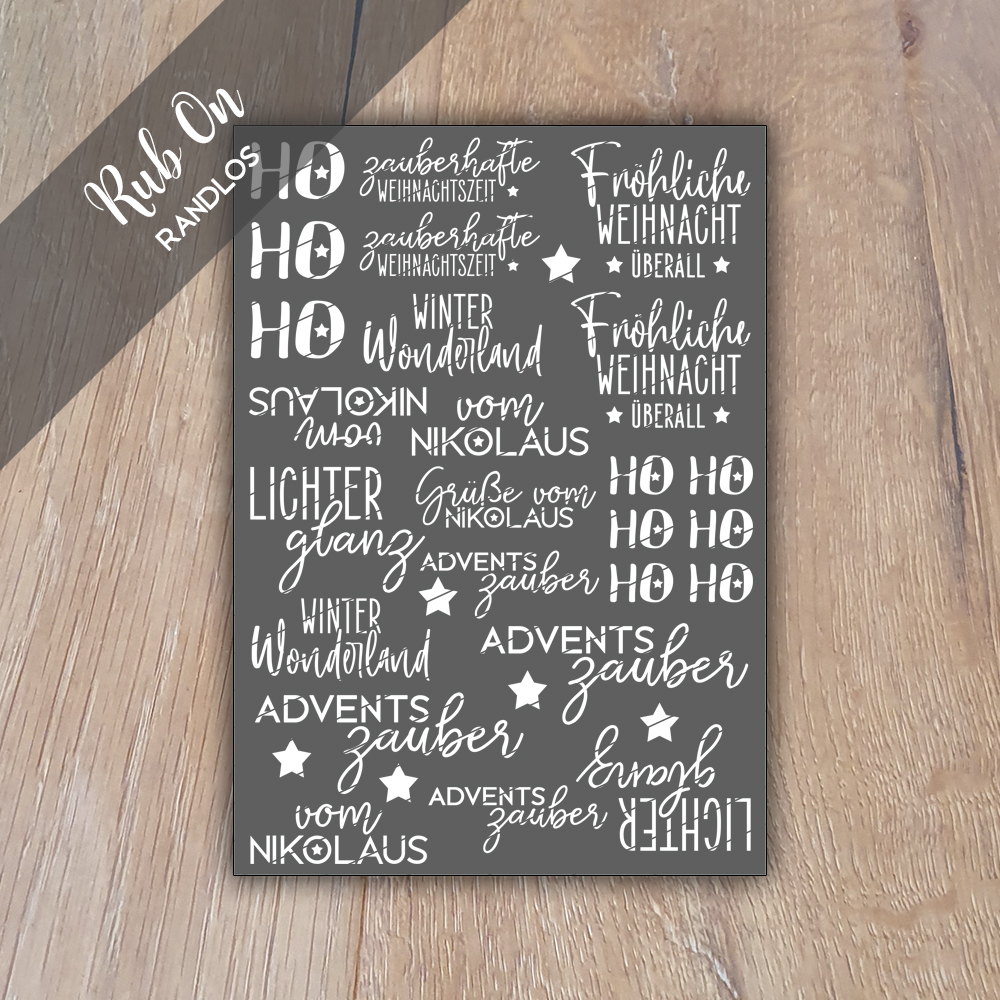 Rub On
RANDLOS
HO
HO
HO
zauberhafte
WEIHNACHTSZEIT
zauberhafte
WEIHNACHTSZEIT
Fröhliche
WEIHNACHT
ÜBERALL
WINTER
Wonderland
Fröhliche
WEIHNACHT
ÜBERALL
vom
NIKOLAUS
vom
NIKOLAUS
LICHTER
glanz
Grüße vom
NIKOLAUS
HO HO
HO HO
HO HO
ADVENTS
zauber
WINTER
Wonderland
ADVENTS
zauber
ADVENTS
zauber
LICHTER
glanz
ADVENTS
zauber
vom
NIKOLAUS